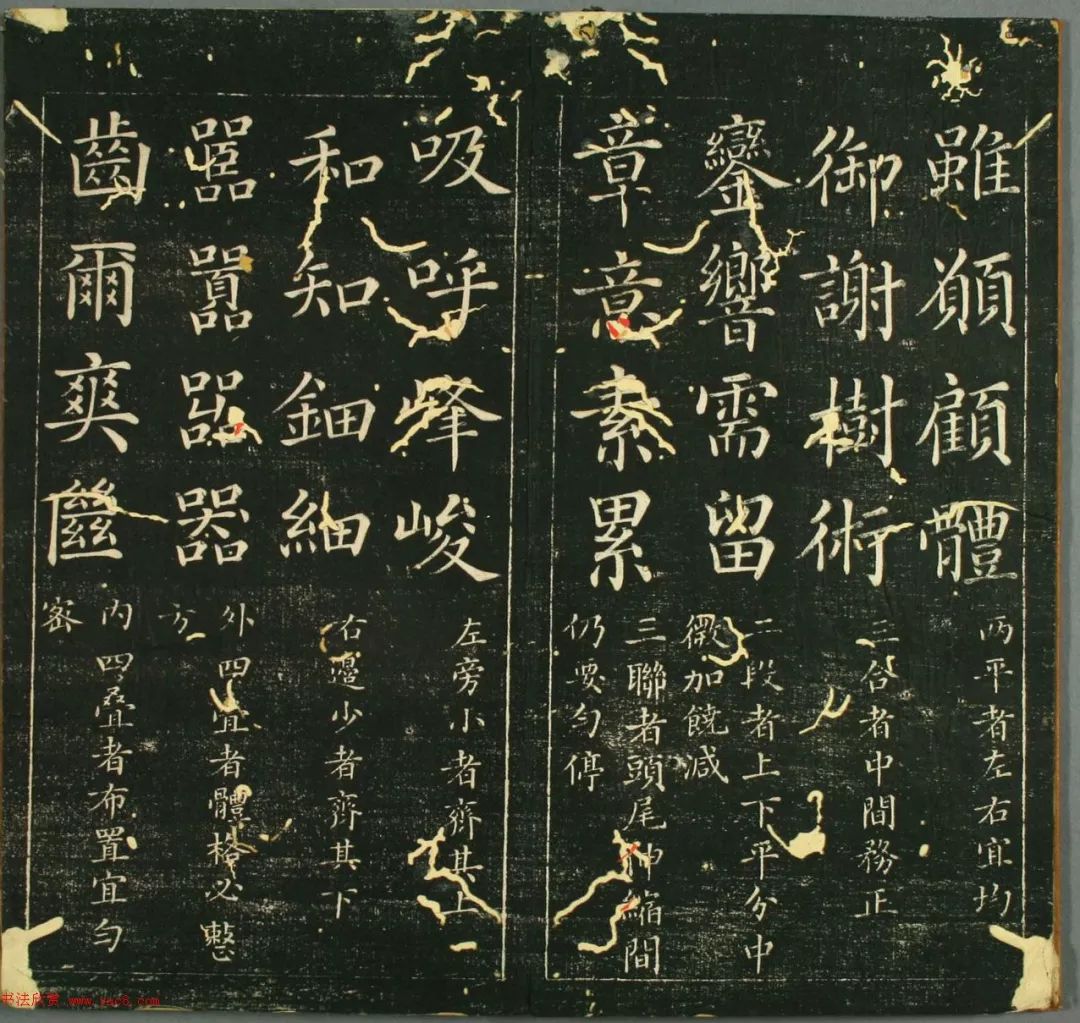 雖願顧體
兩平者左右宜均
御謝樹術
三合者中間務正
鑾響需留
二段者上下平分中
微加饒減
章意素累
三聯者頭尾伸縮間
仍要勻停
吸呼峰峻
左旁小者齊其上
和知鈿細
右邊少者齊其下
噐嚚器器
外四宜者體格必整
方
齒爾爽㘓
內四疊者布置宜勻
密
书法欣赏 www.yac8.com